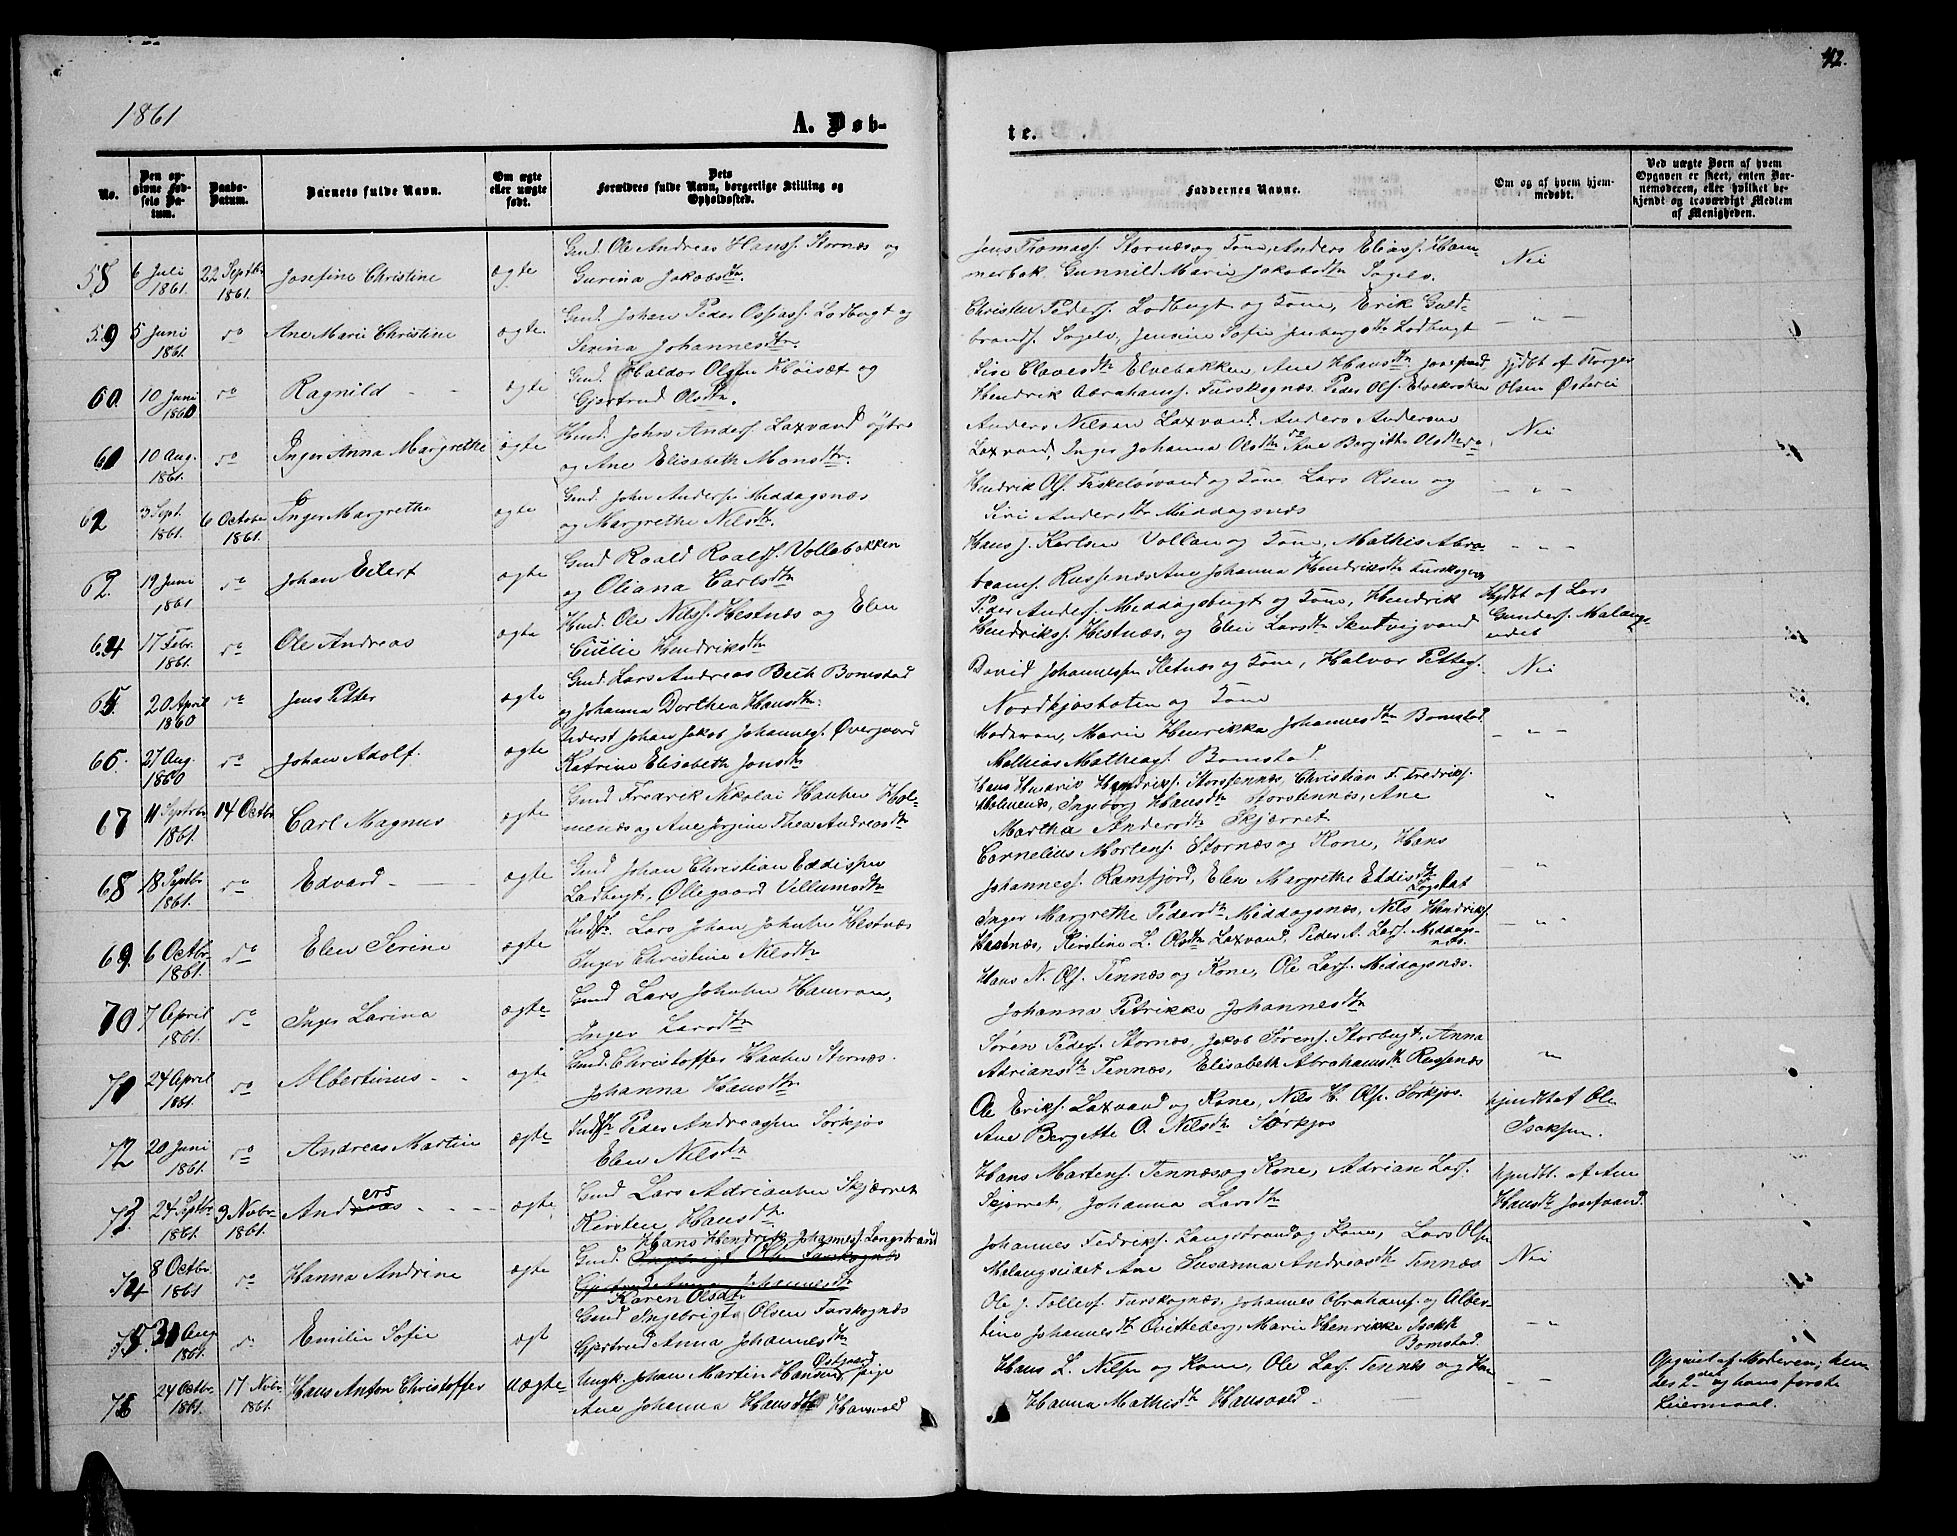 42.
1861
A. Døb-
te.
No.
Den op-
givne Fød-
sels Da-
tum.
Daabs-
Datum.
Barnets fulde Navn.
Om ægte
eller uægte
født.
Dets
Forældres fulde Navn, borgerlige Stilling og
Opholdssted.
Faddernes Navne.
Om og af hvem hjem-
medøbt.
Ved uægte Børn af hvem
Opgaven er skeet, enten Bar-
nemoderen, eller hvilket be-
kjendt og troværdigt Medlem
af Menigheden.
58 6 Juli 1861 22 Septbr 1861. Josefine Christine ægte
Gmd. Ole Andreas Hanss. Stornæs og
Gurina Jakobsdtr.
Jens Thomass. Stornæs og Kone, Anders Eliass. Ham-
merbak Gunnild Marie Jakobsdtr Sagelv.
Nei
59 5 Juni 1861 do Ane Marie Christine ægte
Gmd. Johan Peder Ospass. Ladbugt og
Serina Johannesdtr.
Christen Peders. Ladbugt og Kone, Erik Guld-
brands. Sagelv, Jensine Sofie Ladbugt
— " —
60. 10 Juni 1860 do Ragnild ægte
Gmd. Haldor Olsen Høisæt og
Gjertrud Olsdtr.
Sise Clavesdtr Elvebakken, Ane Hansdtr
Hendrik Abrahams. Furskognæs. Peder Ols. Elvekroken
hjdbt af Torger
Olsen Østerei
61 10 Aug. 1861. do Inger Anna Margrethe ægte
John Anders. Laxvand
og Ane Elisabeth Monsdtr.
Anders Nilsen Laxvand Anders Andersen
Laxvand, Inger Johanna Olsdtr do Ane Bergitte Olsdtr do
Nei
62 3 Sept. 1861. 6 October 1861. Inger Margrethe ægte
Gmd. John Anders. Middagsnæs
og Margrethe Nilsdtr.
Hendrik Ols. Fiskeløsvand og Kone Lars Olsen og
Siri Andersdtr Middagsnæs
— " —
62. 19 Juni 1861 do Johan Eilert ægte
Gmd Roald Roalds. Vollabakken
og Oliana Carlsdtr
Hans J. Karlsen Vollan og Kone, Mathis Abra-
hams. Russenæs Ane Johanna Hendriksdtr Furskognæs
— " —
64 17 Febr. 1861. do Ole Andreas ægte
Ole Nilss. Hestnæs og Elen
Cicilie Hendriksdtr
Peder Anders. Middagsbugt og Kone, Hendrik
Hendrikss. Hestnæs, og Elen Larsdtr Skutvigvand
Hjdbt af Lars
Gunders. Malangs-
eidet
65. 20 April 1860 do Jens Peder ægte
Gmd. Lars Andreas Beck Bomstad
og Johanna Dorthea Hansdtr.
David Johannessen Sletnæs og Kone, Halvor Petters.
Nordkjosbotn og Kone
Nei
65. 27 Aug. 1860 do Johan Adolf. ægte
Inderst Johan Jakob Johanness. Øvergaard
Katrine Elisabeth Jonsdtr
Moderen, Marie Henrikka Johannesdtr Bomstad.
Mathias Mathiass. Bomstad.
— " —
67 11 Septbr. 1861. 14 Octbr. Carl Magnus ægte
Gmd Fredrik Nikolai Hansen Hol-
menæs og Ane Jørgine Thea Andreasdtr
Hans Hendrik Hendriks. Storstennæs, Christian F. Fredriks.
Holmenæs, Ingeborg Hansdtr Storstennæs, Ane
Martha Andersdtr Skjærret
"
68 18 Septbr 1861. do Edvard ægte
Gmd Johan Christian Eddissen
Ladbugt, Ollegaard Villumsdtr
Cornelius Mortens. Stornæs og Kone, Hans
Johanness. Ramfjord, Elen Margrethe Eddisdtr
"
69. 6 Octbr. 1861. do Elen Serine ægte
Lars Johan Johnsen Hestnæs
Inger Christine Nilsdtr
Inger Margrethe Pedersdtr Middagsnæs, Nils Hendriks.
Hestnæs, Kirstine L. Olsdtr Laxvand, Peder A. Lars. Middags-
næs.
— " —
70 7 April 1861. do Inger Larina ægte
Gmd Lars Johnsen Hamran,
Inger Larsdtr
Hans N. Ols. Tennæs og Kone, Ole Lars. Middagsnæs.
Johanna Petrikke Johannesdtr
71 24 April 1861. do Albertinus ægte
Gmd. Christoffer Hansen Stornæs.
Johanna Hansdtr
Søren Peders. Stornæs, Jakob Sørens. Storbugt, Anna
Adriansdtr Tennæs, Elisabeth Abrahamsdtr Russenæs
"
72 20 Juni 1861. do Andreas Martin ægte
Peder Andreassen Sørkjos
Elen Nilsdtr
Ole Eriks. Laxvand og Kone, Nils H. Ols. Sørkjos.
Ane Bergette O. Nilsdtr Sørkjos
hjmdbt af Ole
Isaksen.
73. 24 Septbr 1861. 3 Nvbr. 1861. Anders ægte
Gmd Lars Adriansen Skjærret
Kirsten Hansdtr
Hans Martens. Tennæs og Kone, Adrian Lars.
Skjærret, Johanna Larsdtr
hjmdbt. af Ane
Hansdtr Josefvand.
74 8 Octbr 1861 do Hanna Andrine ægte
Hans Hendrik Johanness. Langstrand
Gmd. Ingebrigt Ols. Furskognæs
Gjertrud Anna Johannesdtr
Karen Olsdtr
Johannes Fedriks. Langstrand og Kone, Lars Olsen
Malangseidet Ane Susanna Andreasdtr Tennæs
Nei
75. 30 Aug 1861. do Emilie Sofie ægt
Gmd Ingebrigt Olsen Furskognæs
Gjertrud Anna Johannesdtr
Ole J. Tolless. Furskognæs, Johannes Abrahams. og Alber-
tine Johannesdtr Qvitteberg, Marie Henrikke Isaksdtr
Bomstad.
— " —
76 24 Octbr 1861. 17 Nvbr. 1861. Hans Anton Christoffer uægte
Ungk. Johan Martin Hansen Østgaard pige
Ane Johanna Hansdtr Hansvold
Hans L. Nilsen og Kone, Ole Lars. Tennæs og Kone
Hanna Mathisdtr Hansvold
Opgivet af Moderen; hen-
des 2det og hans første
Leiermaal.